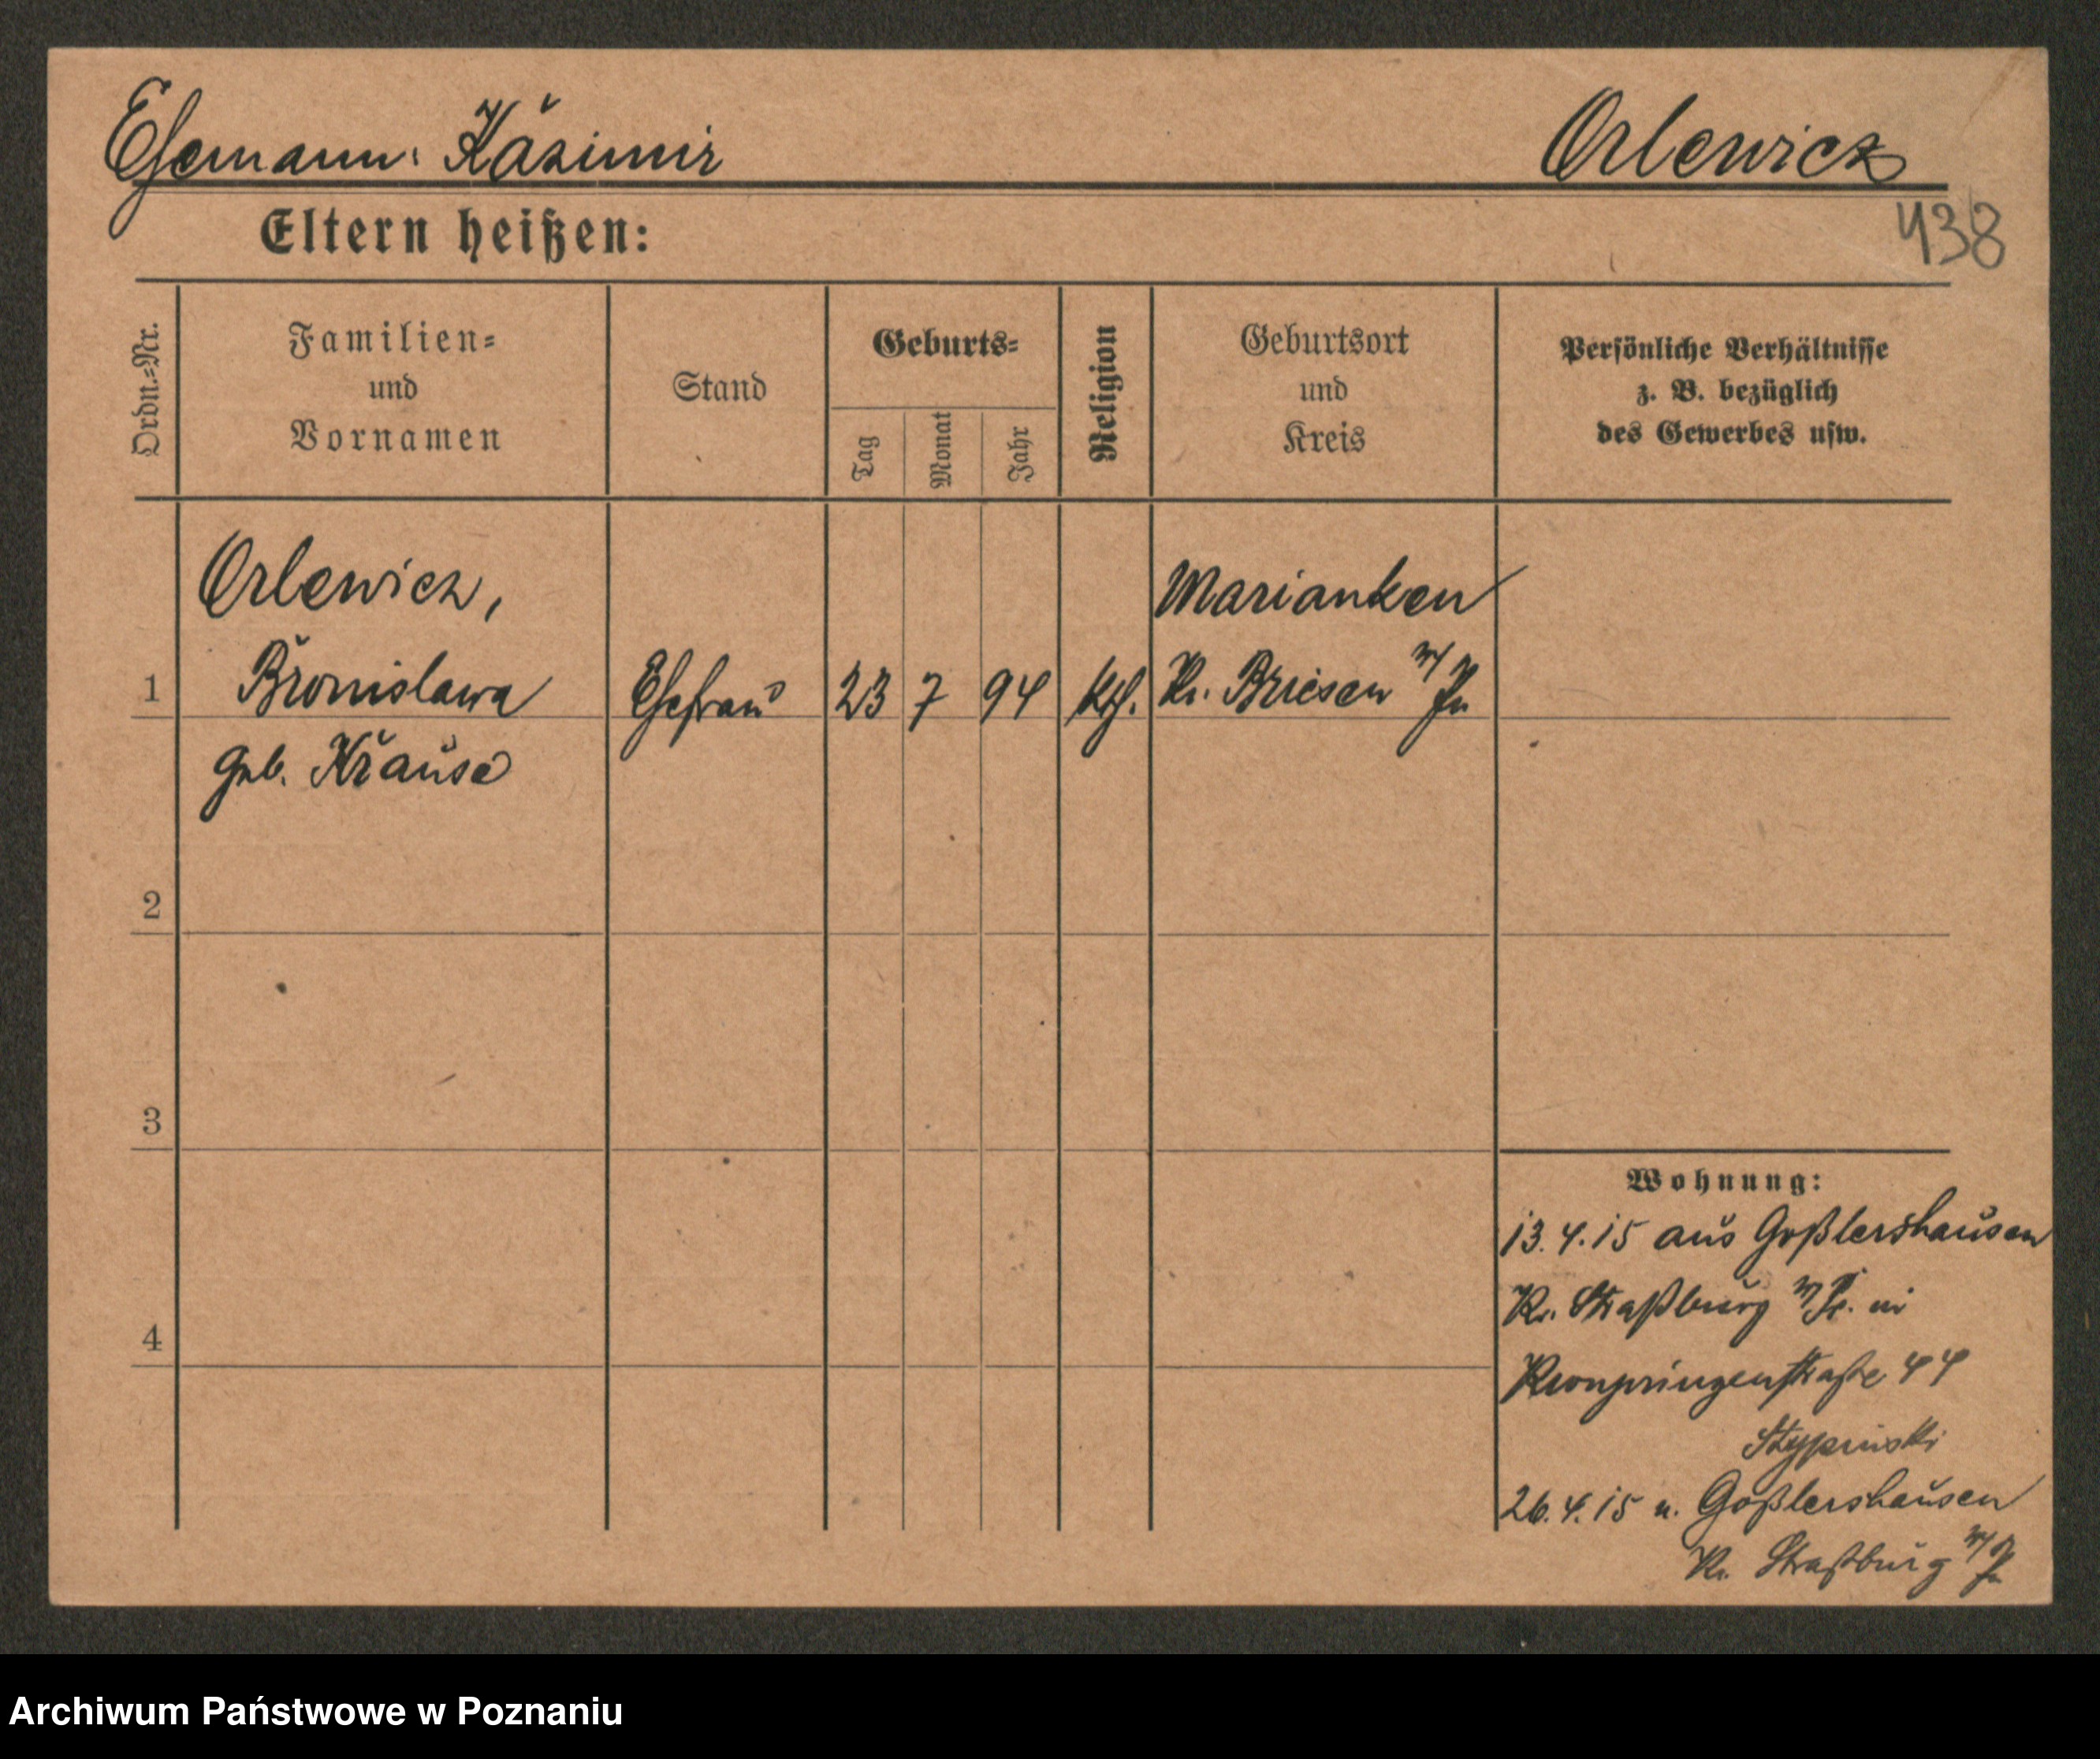 Ehemann: Kasimir Orlewicz
438
Eltern heißen:
Ordn.=Nr.
Familien=
und
Vornamen
Stand
Geburts=
Tag
Monat
Jahr
Religion
Geburtsort
und
Kreis
Persönliche Verhältnisse
z. B. bezüglich
des Gewerbes usw.
Orlewicz,
Bronislawa
geb. Krause
1
Ehefrau
23 7 94
kth.
Marianken
Kr. Briesen W/Pr
2
3
4
Wohnung:
13.4.15 aus Goßlershausen
Kr. Straßburg W/Pr. in
Kronprinzenstraße 44
Stypinski
26.4.15 n. Goßlershausen
Kr. Straßburg W/Pr
Archiwum Państwowe w Poznaniu